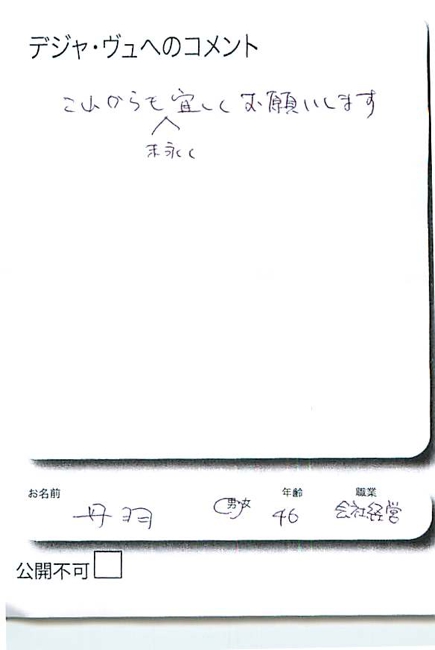 デジャ・ヴュへのコメント
これからも宜しくお願いします
末永く
お名前
男・女
年齢
職業
丹羽
46
会社経営
公開不可